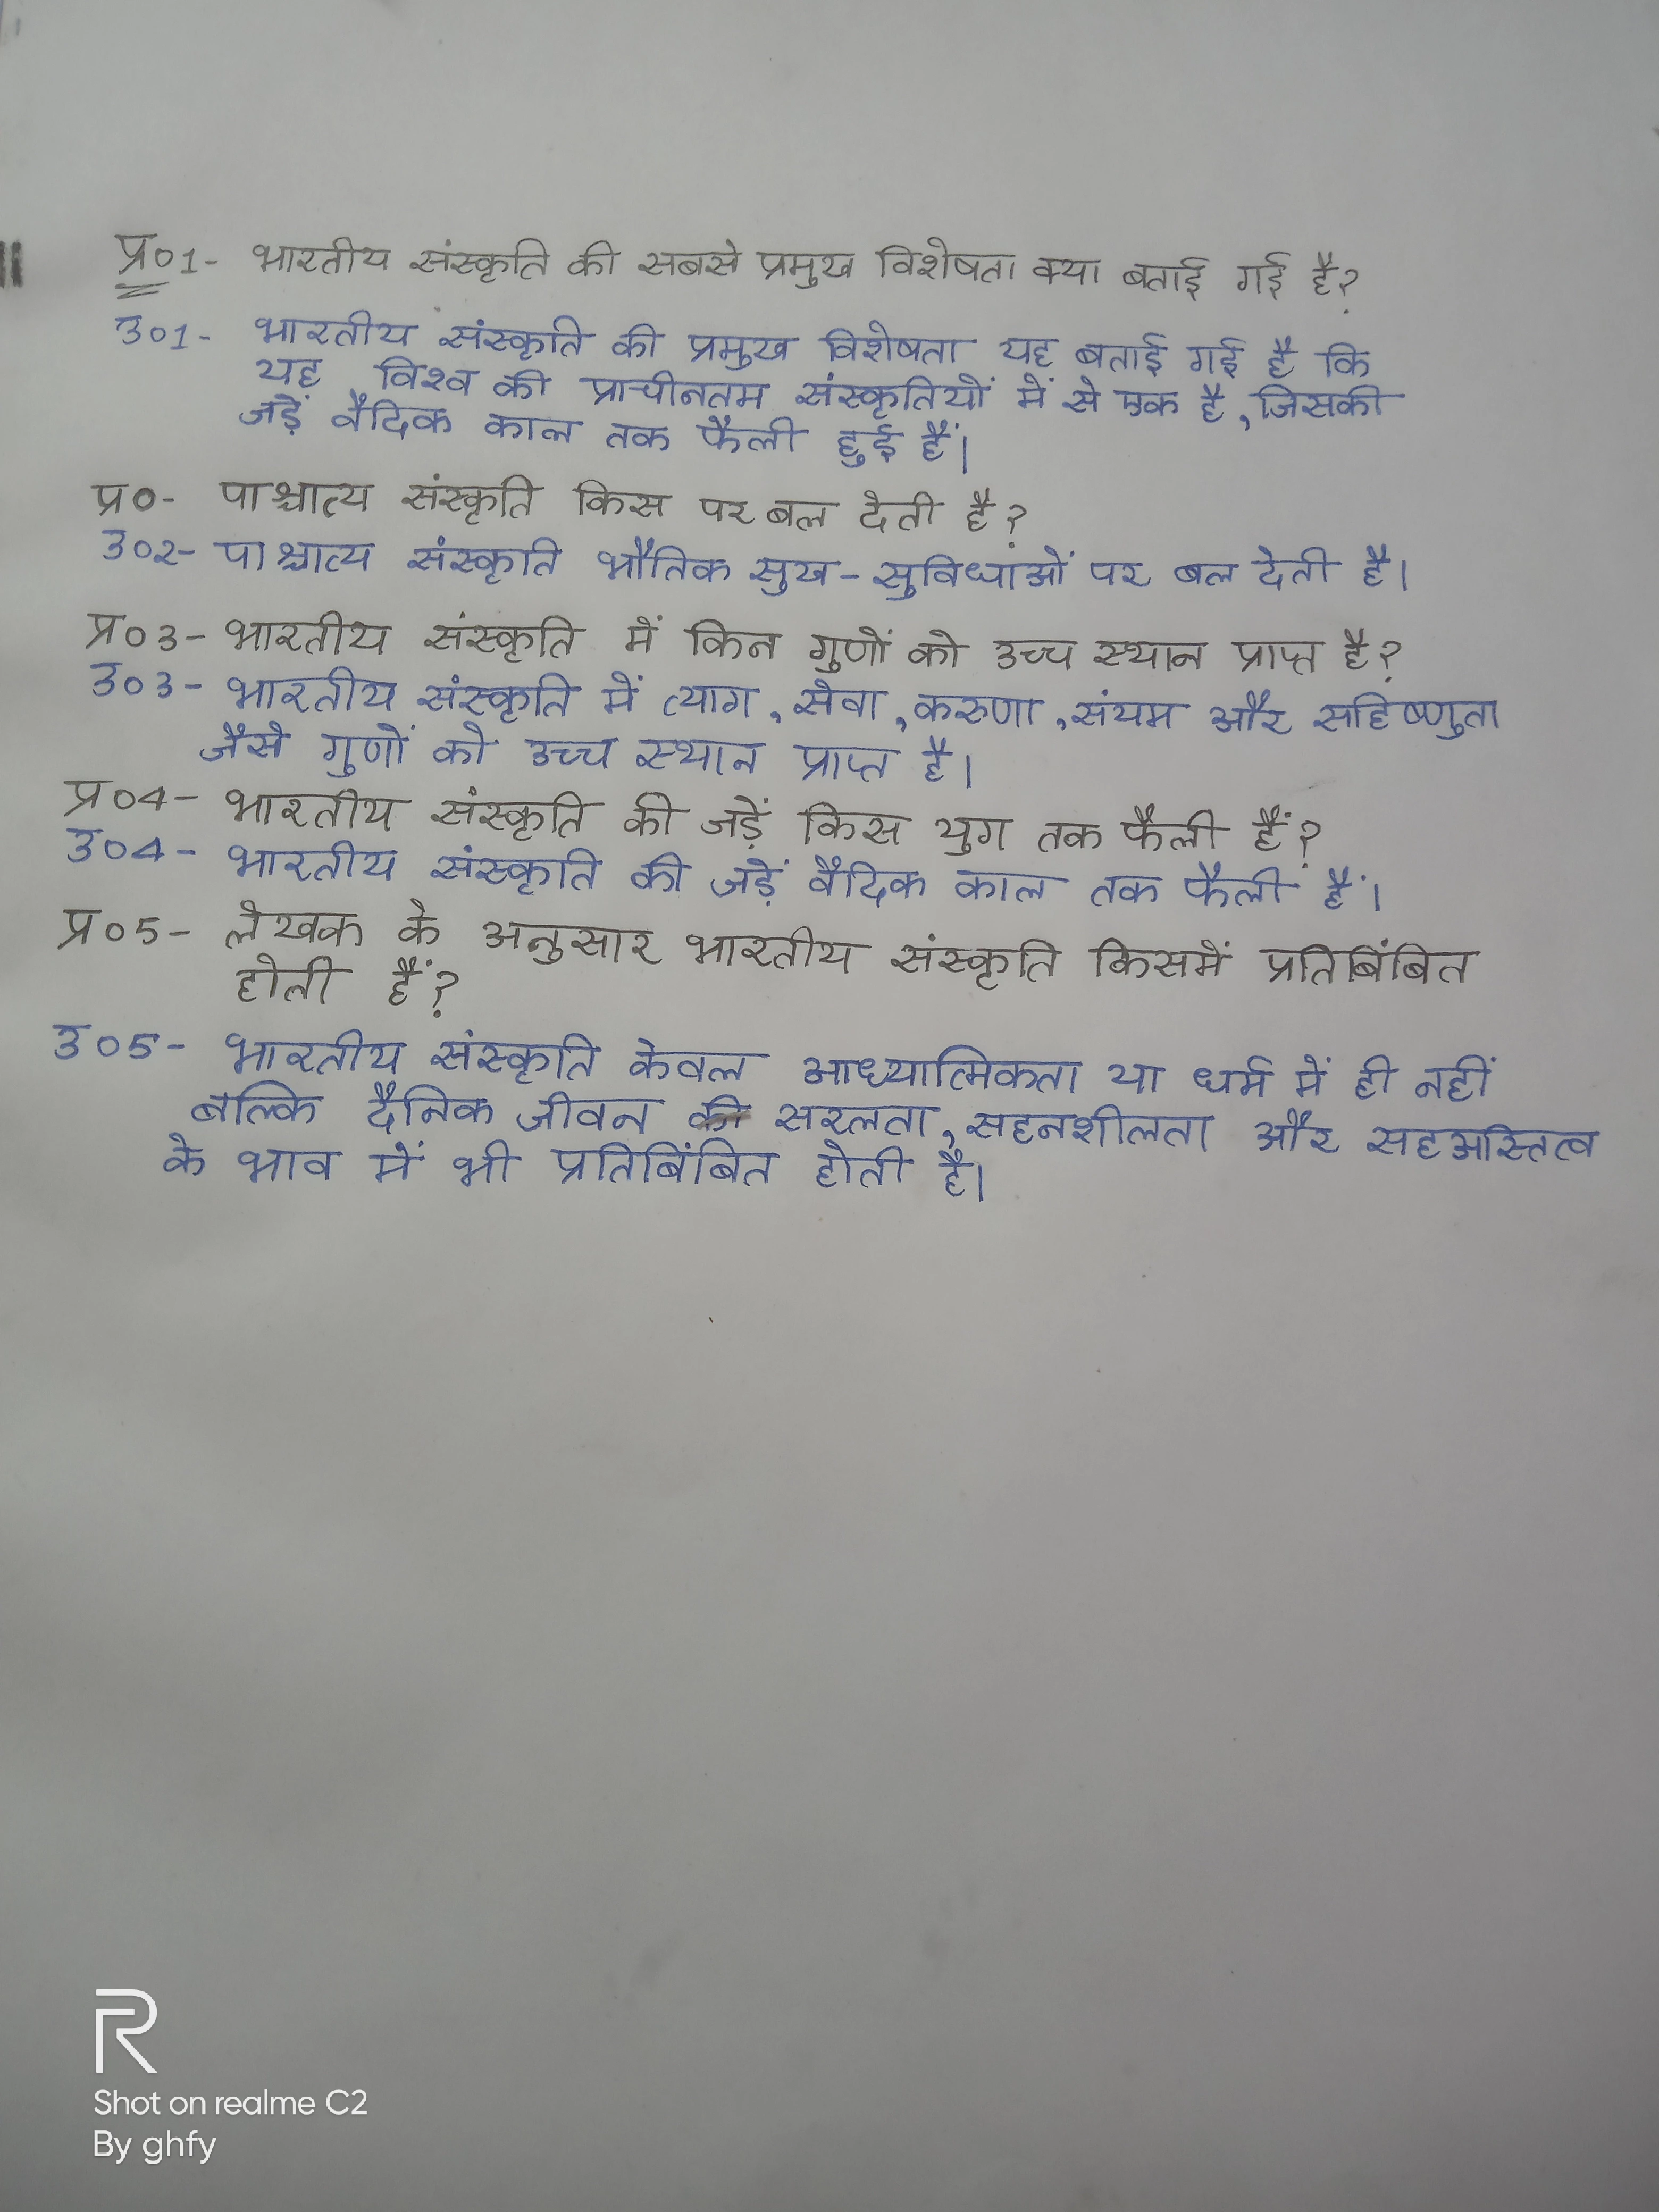 प्र०1- भारतीय संस्कृति की सबसे प्रमुख विशेषता क्या बताई गई है?
उ०1- भारतीय संस्कृति की प्रमुख विशेषता यह बताई गई है कि
यह विश्व की प्राचीनतम संस्कृतियों में से एक है, जिसकी
जड़ें वैदिक काल तक फैली हुई हैं।
प्र०- पाश्चात्य संस्कृति किस पर बल देती है?
उ०2- पाश्चात्य संस्कृति भौतिक सुख-सुविधाओं पर बल देती है।
प्र०3- भारतीय संस्कृति में किन गुणों को उच्च स्थान प्राप्त है?
उ०3- भारतीय संस्कृति में त्याग, सेवा, करुणा, संयम और सहिष्णुता
जैसे गुणों को उच्च स्थान प्राप्त है।
प्र०4- भारतीय संस्कृति की जड़ें किस युग तक फैली हैं?
उ०4- भारतीय संस्कृति की जड़ें वैदिक काल तक फैली हैं।
प्र०5- लेखक के अनुसार भारतीय संस्कृति किसमें प्रतिबिंबित
होती हैं?
उ०5- भारतीय संस्कृति केवल आध्यात्मिकता या धर्म में ही नहीं
बल्कि दैनिक जीवन की सरलता, सहनशीलता और सहअस्तित्व
के भाव में भी प्रतिबिंबित होती है।
R
Shot on realme C2
By ghfy